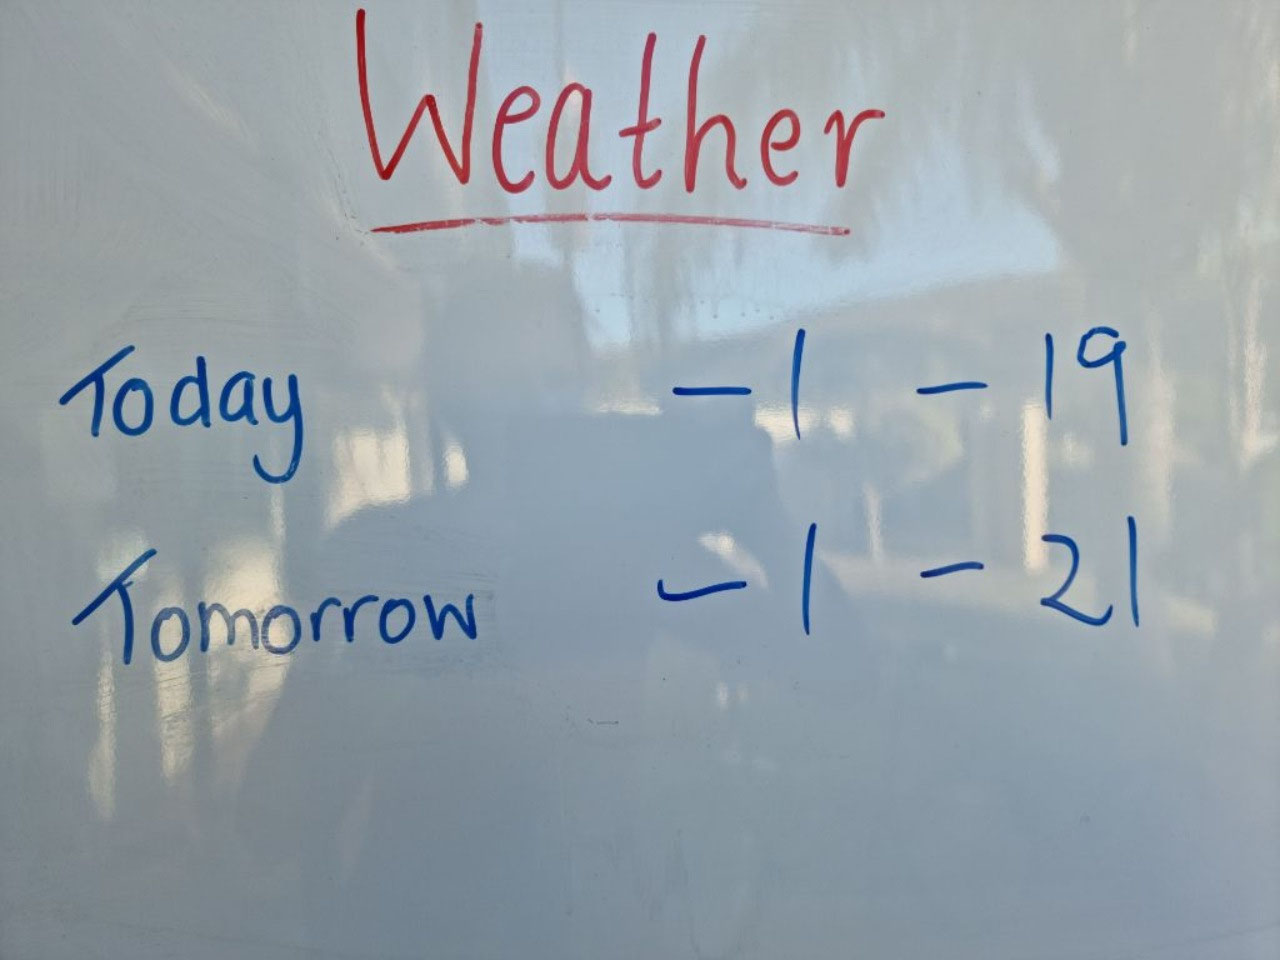 Weather
Today -1 - 19
Tomorrow -1 - 21